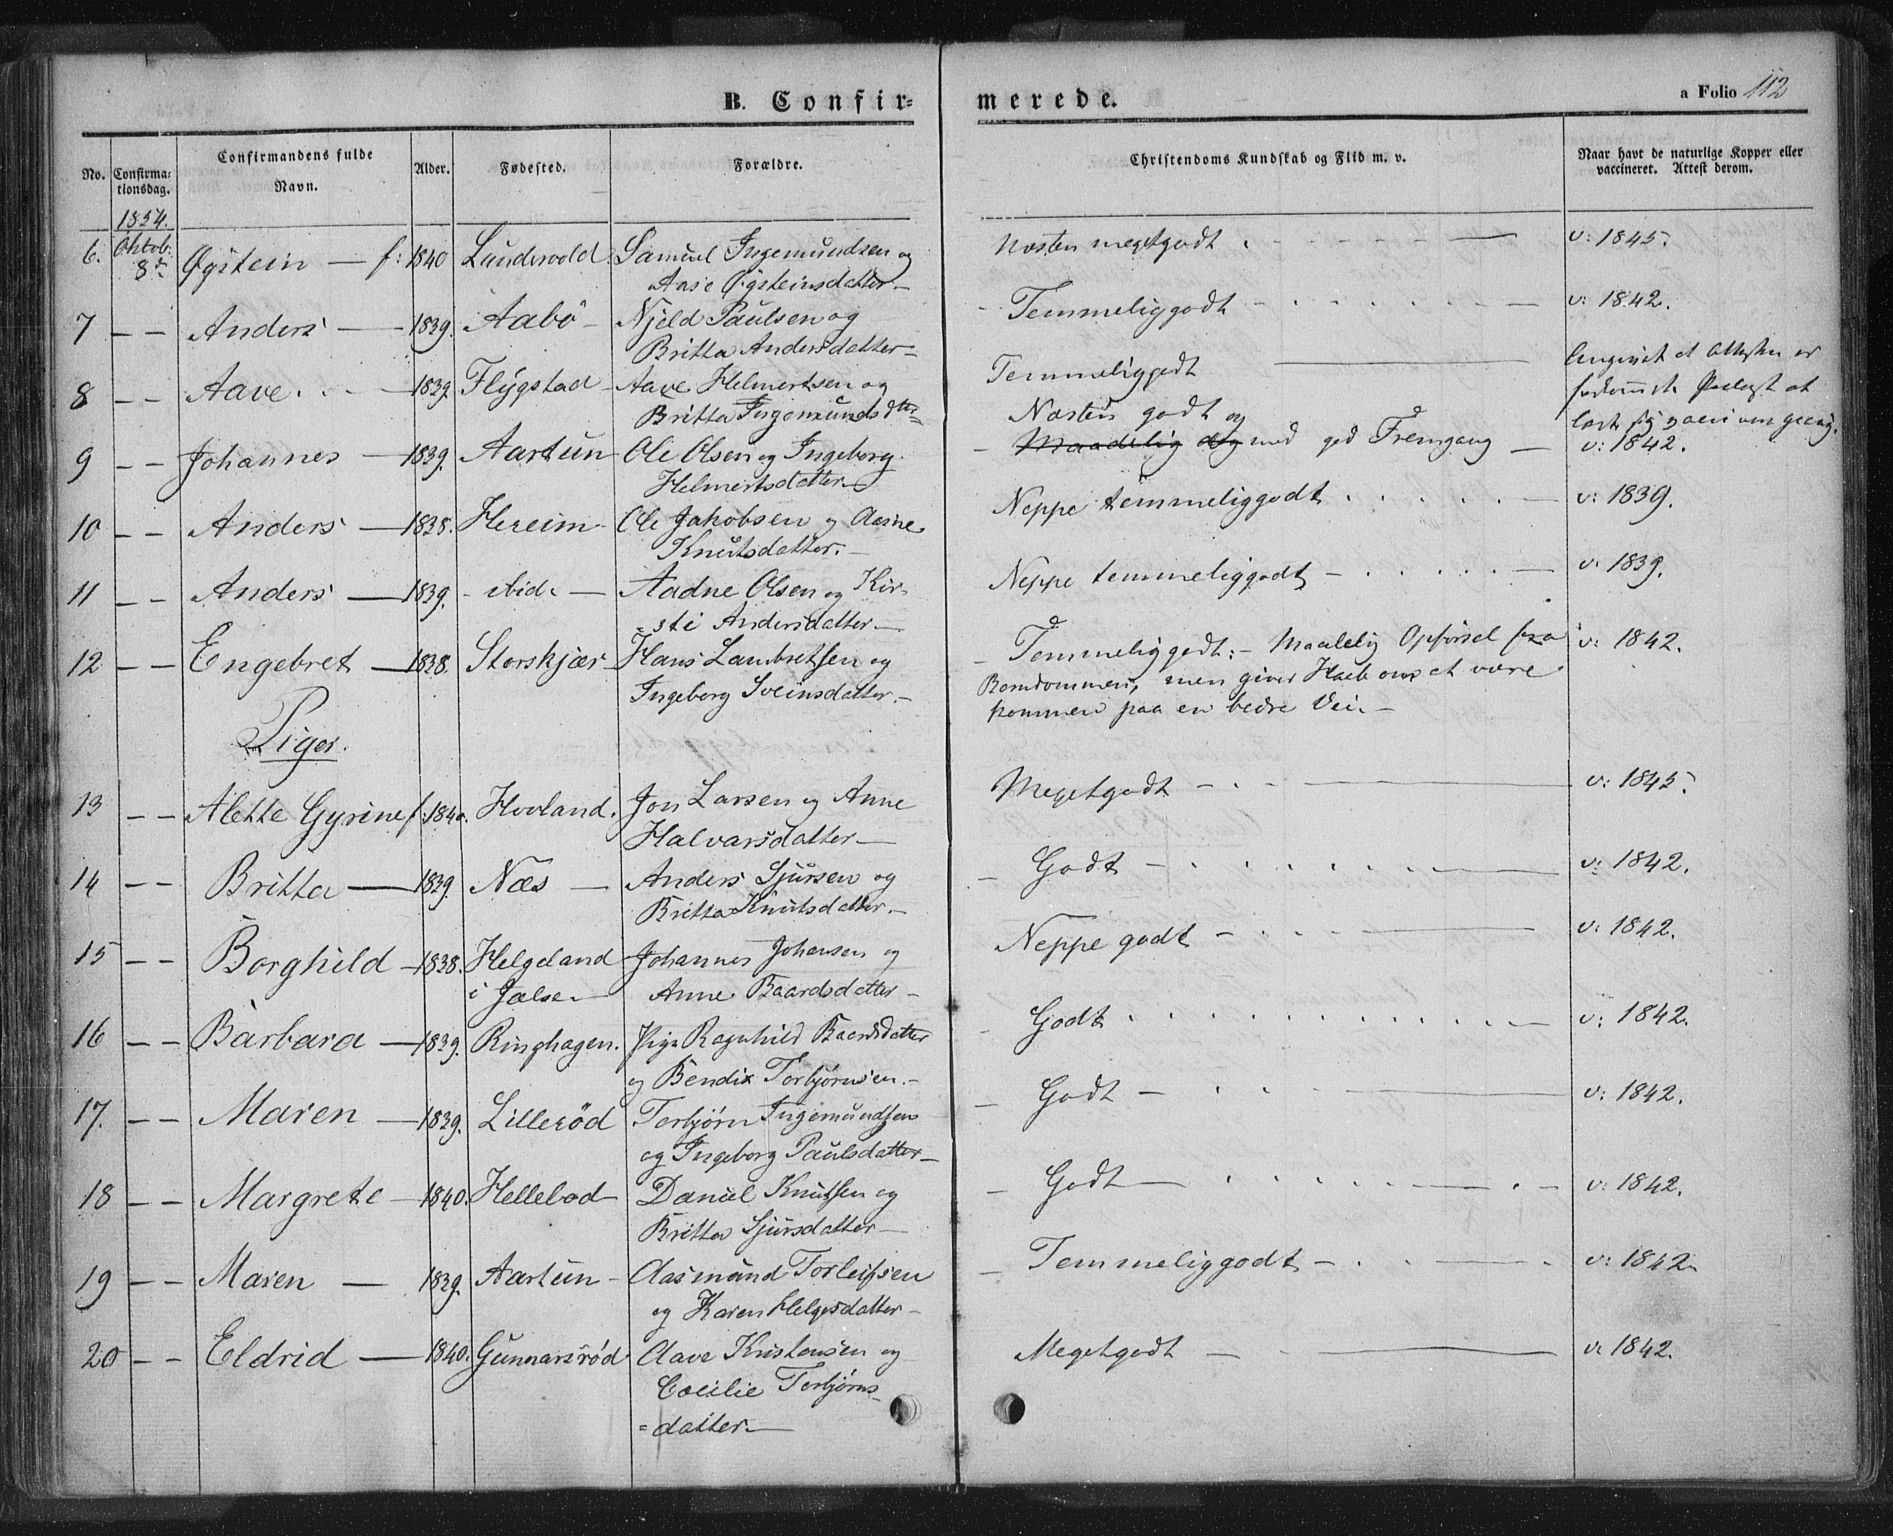 B. Confirmerede. a Folio 112
No. Confirmationsdag. Confirmandens fulde Navn. Alder. Fødested. Forældre. Christendoms Kundskab og Flid m. v. Naar havt de naturlige Kopper eller vaccineret. Attest derom.
1854.
6. Oktob: 8de Øystein — f: 1840 Lundevold Samuel Ingemundsen og Næsten megetgodt v: 1845.
Aase Øysteinsdatter.—
7 — — Anders — 1839. Aabö — Njeld Paulsen og Temmeliggodt v: 1842.
Britta Andersdatter—
8 — — Aave 1839 Flÿgstad — Aave Helmertsen og Temmeliggodt
Britta Ingemundsdtr—
9 — — Johannes — 1839. Aartun — Ole Olsen og Ingeborg Næsten godt og
Helmertsdatter— Maadelig og med god Fremgang — v: 1842.
10 — — Anders — 1838. Hereim — Ole Jakobsen og Aasne Neppe temmeliggodt v: 1839.
Knutsdatter.—
11 — — Anders — 1839. — ibid. — Aadne Olsen og Kir- Neppe temmeliggodt v. 1839.
sti Andersdatter—
12 — — Engebret — 1838. Storskjær — Hans Lambretsen og Temmeliggodt: — Maadelig Opførsel fra v: 1842.
Ingeborg Sveinsdatter.— Barndommen, men giver Haab om at være
kommen paa en bedre Vei.—
Piger.
13 — — Alette Gyrine f: 1840. Hovland. Jon Larsen og Anne Megetgodt v: 1845.
Halvarsdatter—
14 — — Britta — 1839. Næs — Anders Sjursen og Godt v: 1842.
Britta Knutsdatter.—
15 — — Borghild — 1838. Helgeland Johannes Johansen og Neppe godt v: 1842.
i Jælse.— Anne Baardsdatter—
16 — — Barbara — 1839. Ringhagen. Pige Ragnhild Baardsdatter Godt v: 1842.
og Bendix Torbjørnsen.—
17. — — Maren — 1839. Lillerød Torbjörn Ingemundsen Godt v: 1842.
og Ingeborg Paulsdatter—
18 — — Margrete — 1840. Hellebod — Daniel Knutsen og Godt v: 1842.
Britta Sjursdatter—
19 — — Maren — 1839. Aartun — Aasmund Torleifsen Temmeliggodt v: 1842
og Karen Helgesdatter—
20 — — Eldrid — 1840. Gunnarsrød Aave Kristensen og Megetgodt v: 1842.
Cæcilie Torbjørns-
datter.—